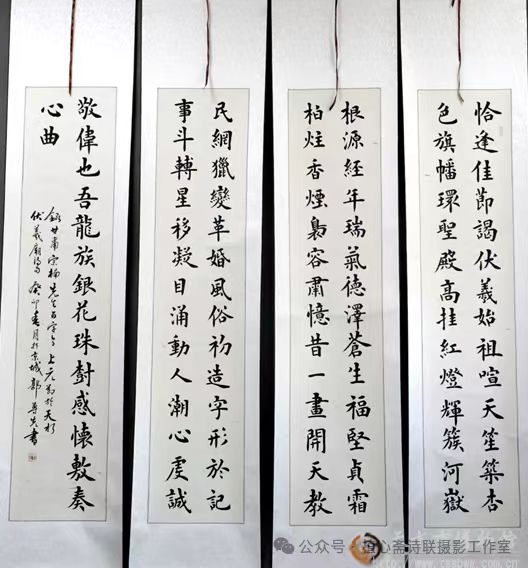 恰逢佳節謁伏羲始祖喧天笙築杏
色旗幡環聖殿高挂紅燈輝簇河嶽
根源經年瑞氣德澤蒼生福堅貞霜
柏炷香煙裊容肅憶昔一畫開天教
民網獵變革婚風俗初造字形於記
事斗轉星移凝目涌動人潮心虔誠
敬偉也吾龍族銀花珠樹感懷敷奏
心曲
錄甘肅宗楊先生百字令上元節於天水
伏羲廟得句 癸卯春月於京城 郭 書
公众号 心斋诗联摄影工作室